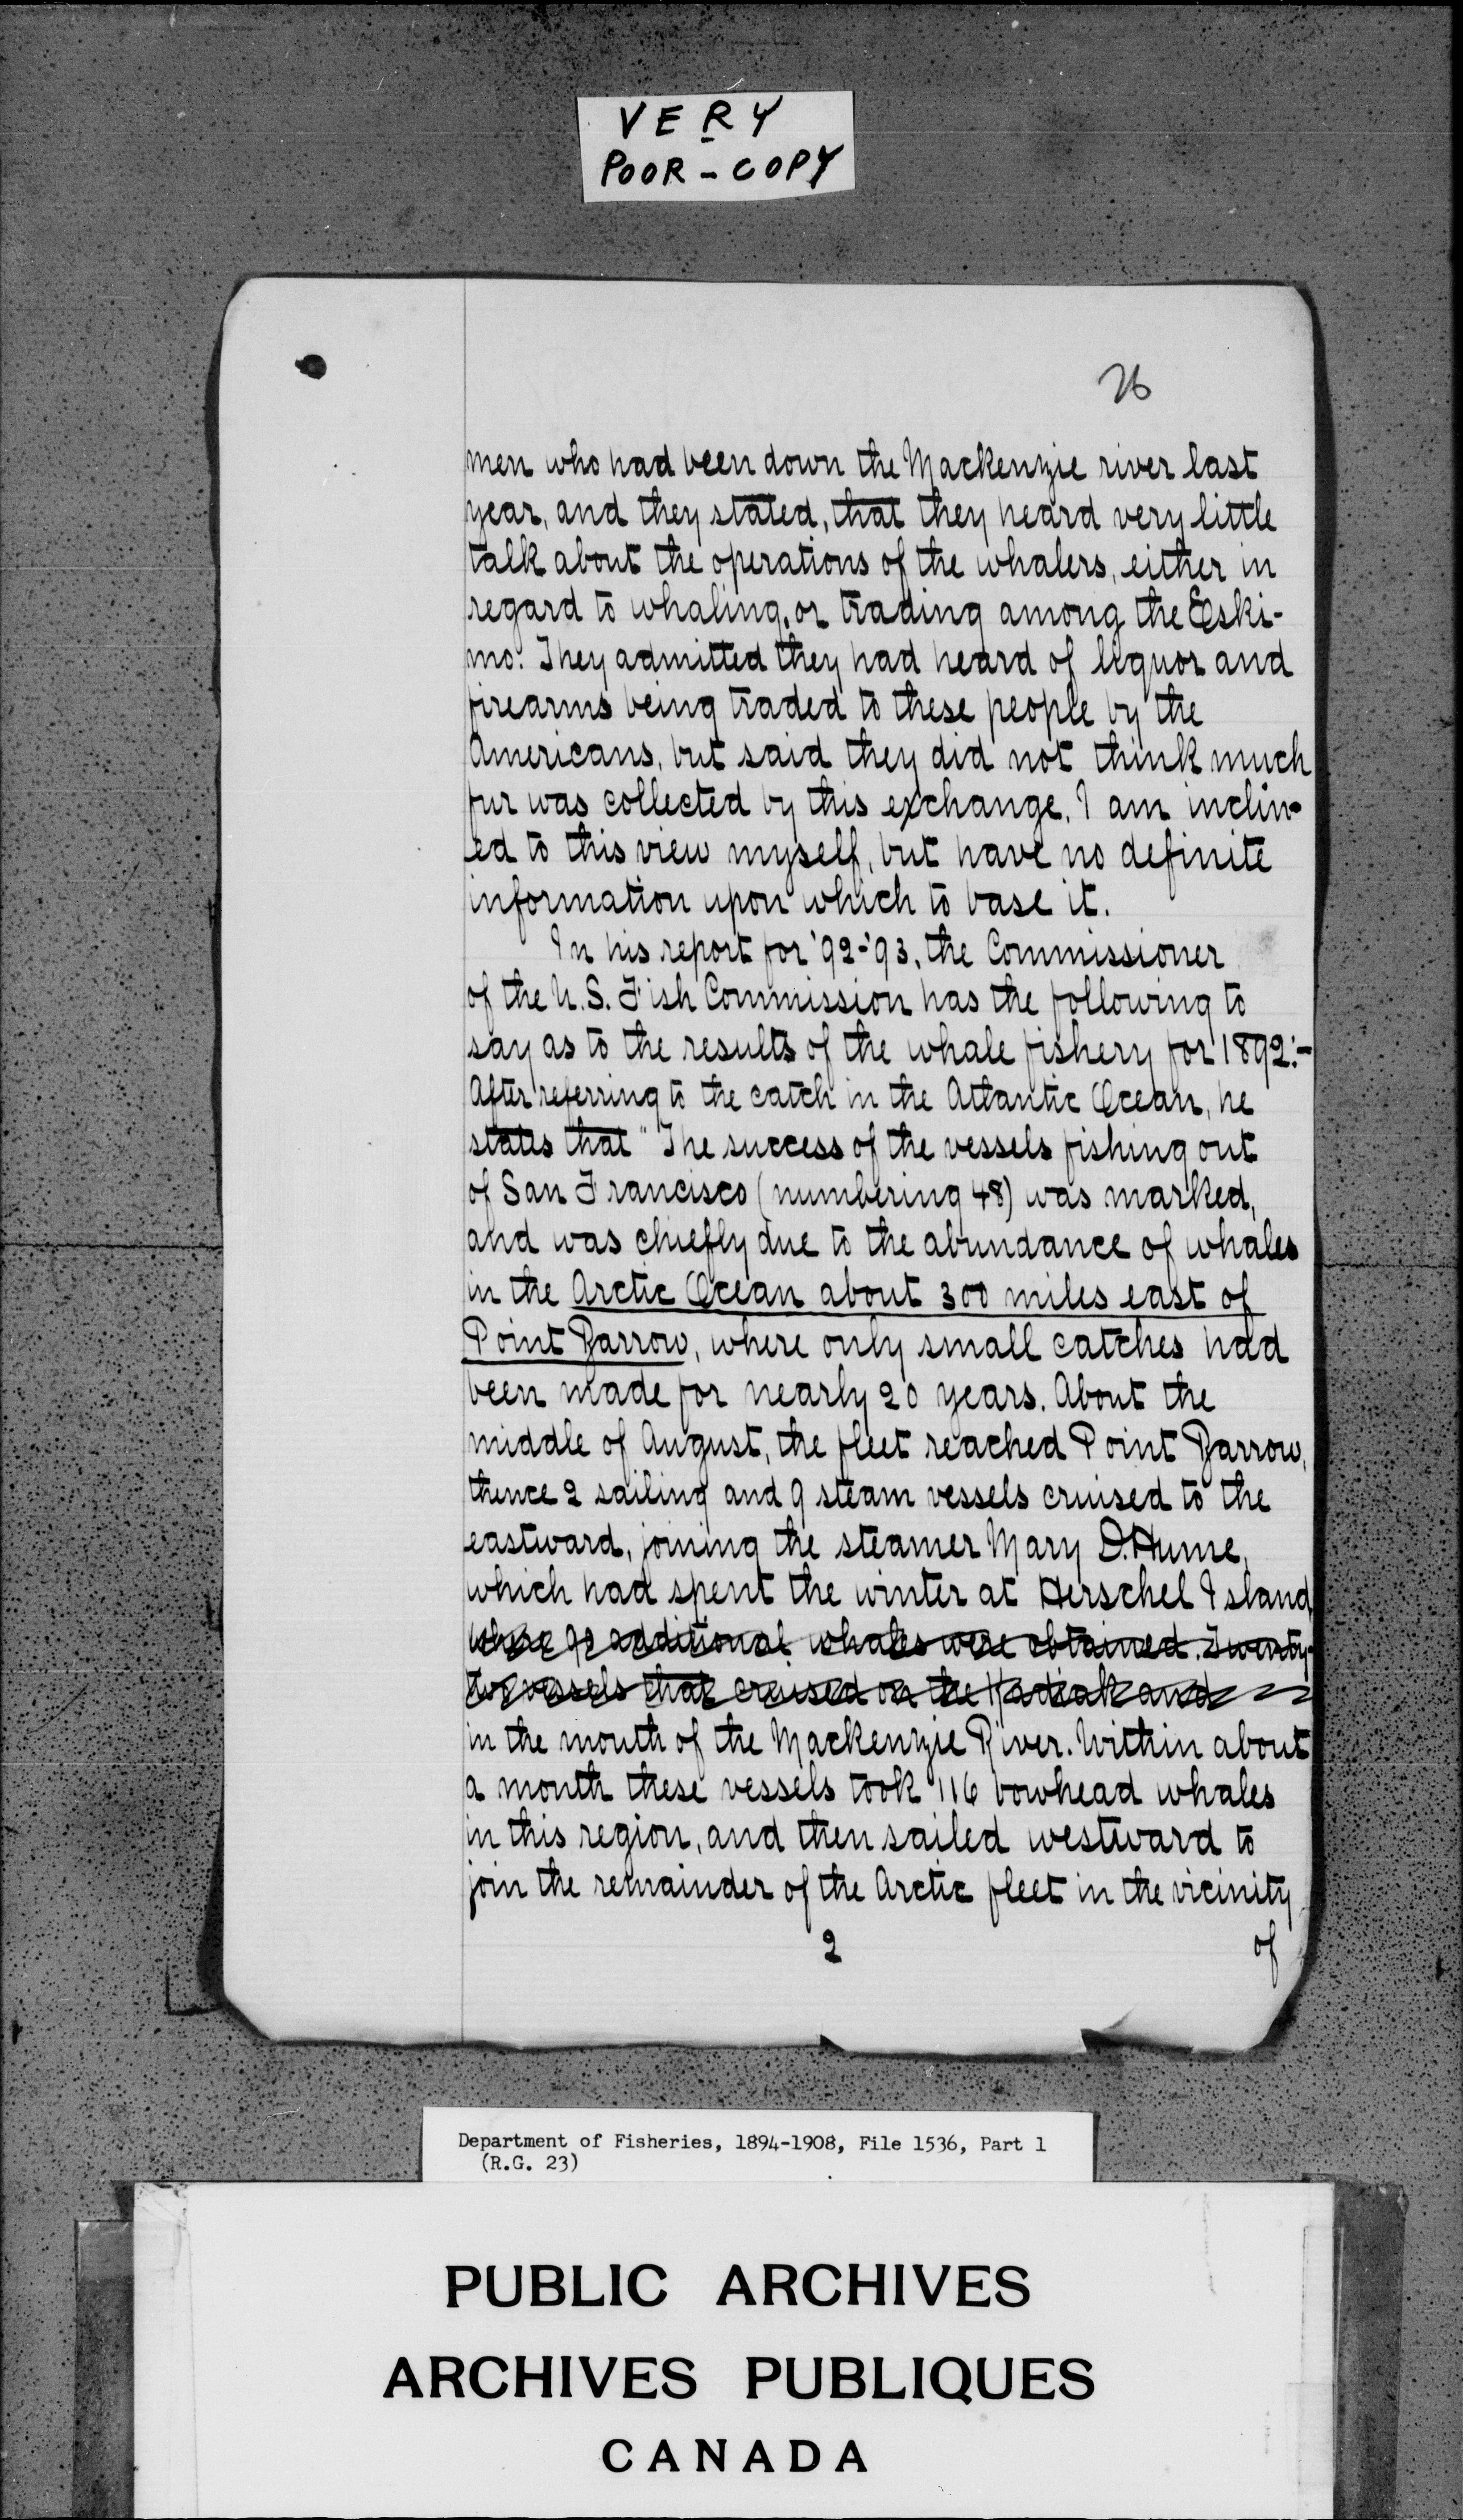 VERY
POOR - COPY
26
men who had been down the Mackenzie river last
year, and they stated, that they heard very little
talk about the operations of the whalers, either in
regard to whaling, or trading among the Eski-
mo. They admitted they had heard of liquor and
firearms being traded to these people by the
Americans, but said they did not think much
fur was collected by this exchange. I am inclin-
ed to this view myself, but have no definite
information upon which to base it.
In his report for '92-'93, the Commissioner
of the U.S. Fish Commission has the following to
say as to the results of the whale fishery for 1892:-
After referring to the catch in the Atlantic Ocean, he
states that "The success of the vessels fishing out
of San Francisco (numbering 48) was marked,
and was chiefly due to the abundance of whales
in the Arctic Ocean about 300 miles east of
Point Barrow, where only small catches had
been made for nearly 20 years. About the
middle of August, the fleet reached Point Barrow,
thence 2 sailing and 9 steam vessels cruised to the
eastward, joining the steamer Mary D. Hume,
which had spent the winter at Herschel Island
where additional whales were obtained. Twenty-
two vessels that cruised on the Kadiak and
in the mouth of the Mackenzie River. Within about
a month these vessels took 116 bowhead whales
in this region, and then sailed westward to
join the remainder of the Arctic fleet in the vicinity
2 of
Department of Fisheries, 1894-1908, File 1536, Part 1
(R.G. 23)
PUBLIC ARCHIVES
ARCHIVES PUBLIQUES
CANADA